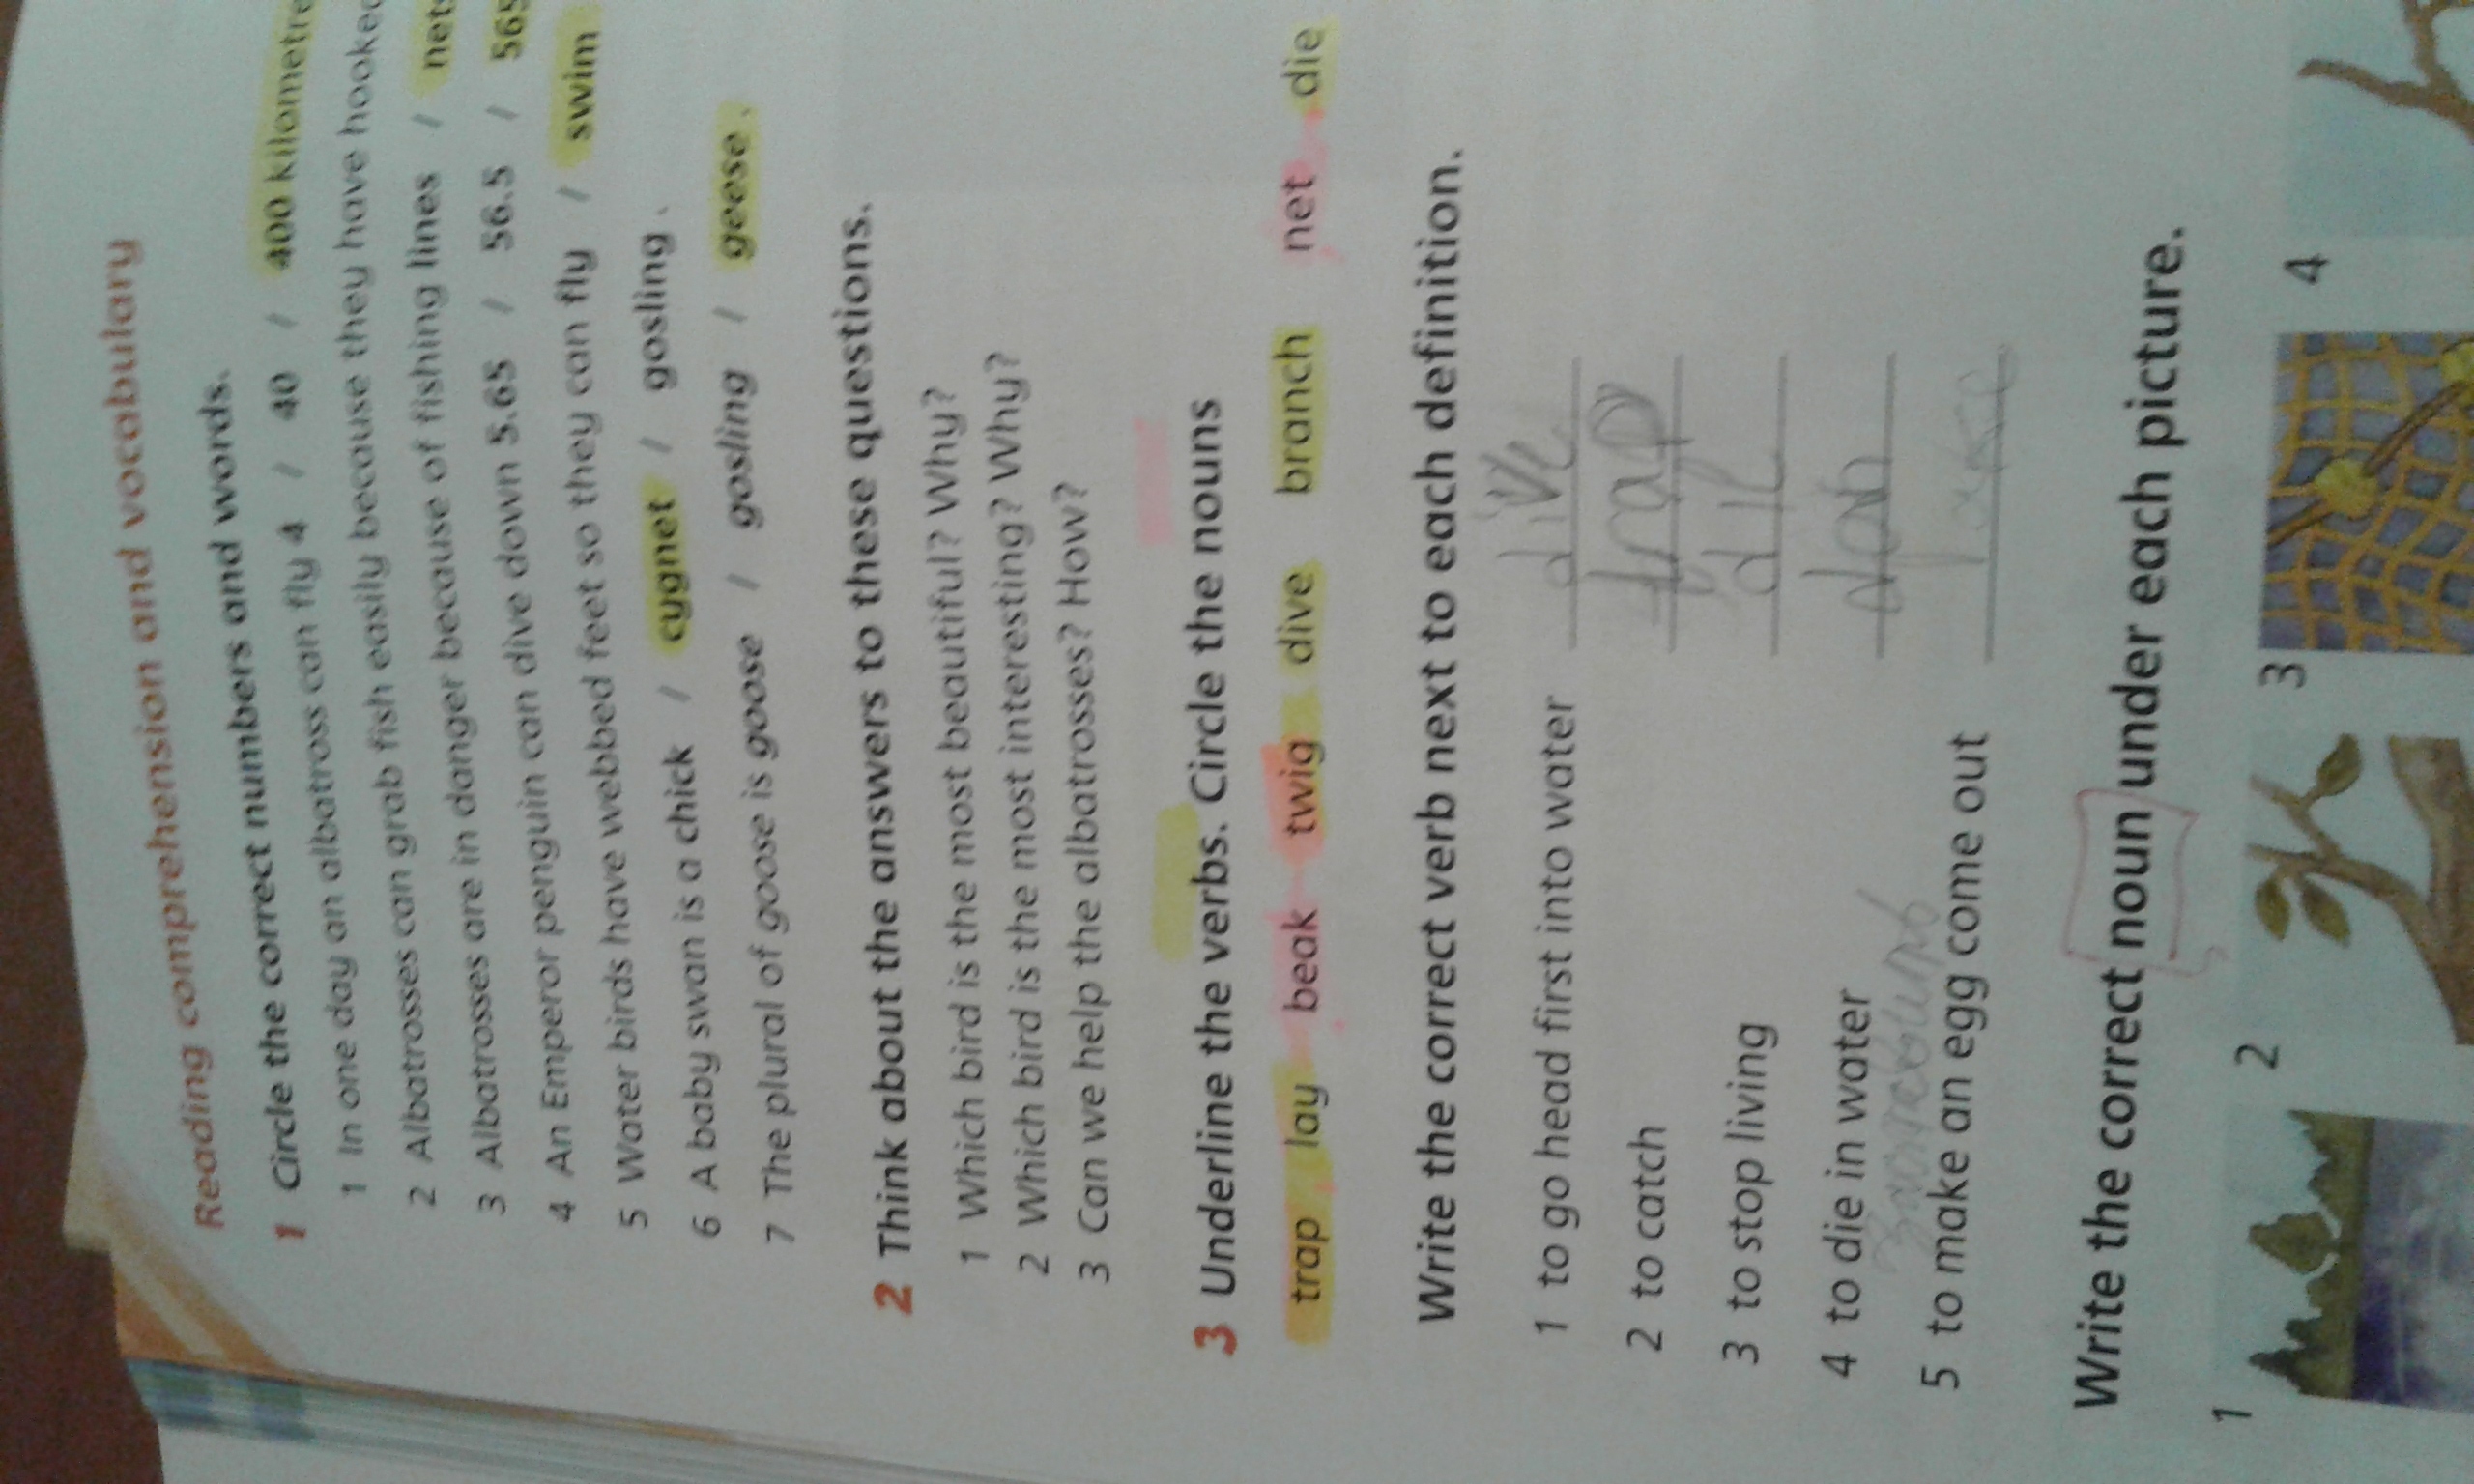 Reading comprehension and vocabulary
1 Circle the correct numbers and words.
1 In one day an albatross can fly 4 / 40 / 400 kilometre
2 Albatrosses can grab fish easily because they have hooked
3 Albatrosses are in danger because of fishing lines / nets
4 An Emperor penguin can dive down 5.65 / 56.5 / 565
5 Water birds have webbed feet so they can fly / swim
6 A baby swan is a chick / cygnet / gosling.
7 The plural of goose is goose / gosling / geese.
2 Think about the answers to these questions.
1 Which bird is the most beautiful? Why?
2 Which bird is the most interesting? Why?
3 Can we help the albatrosses? How?
3 Underline the verbs. Circle the nouns
trap lay beak twig dive branch net die
Write the correct verb next to each definition.
1 to go head first into water dive
2 to catch trap
3 to stop living die
4 to die in water
5 to make an egg come out
Write the correct noun under each picture.
1 2 3 4